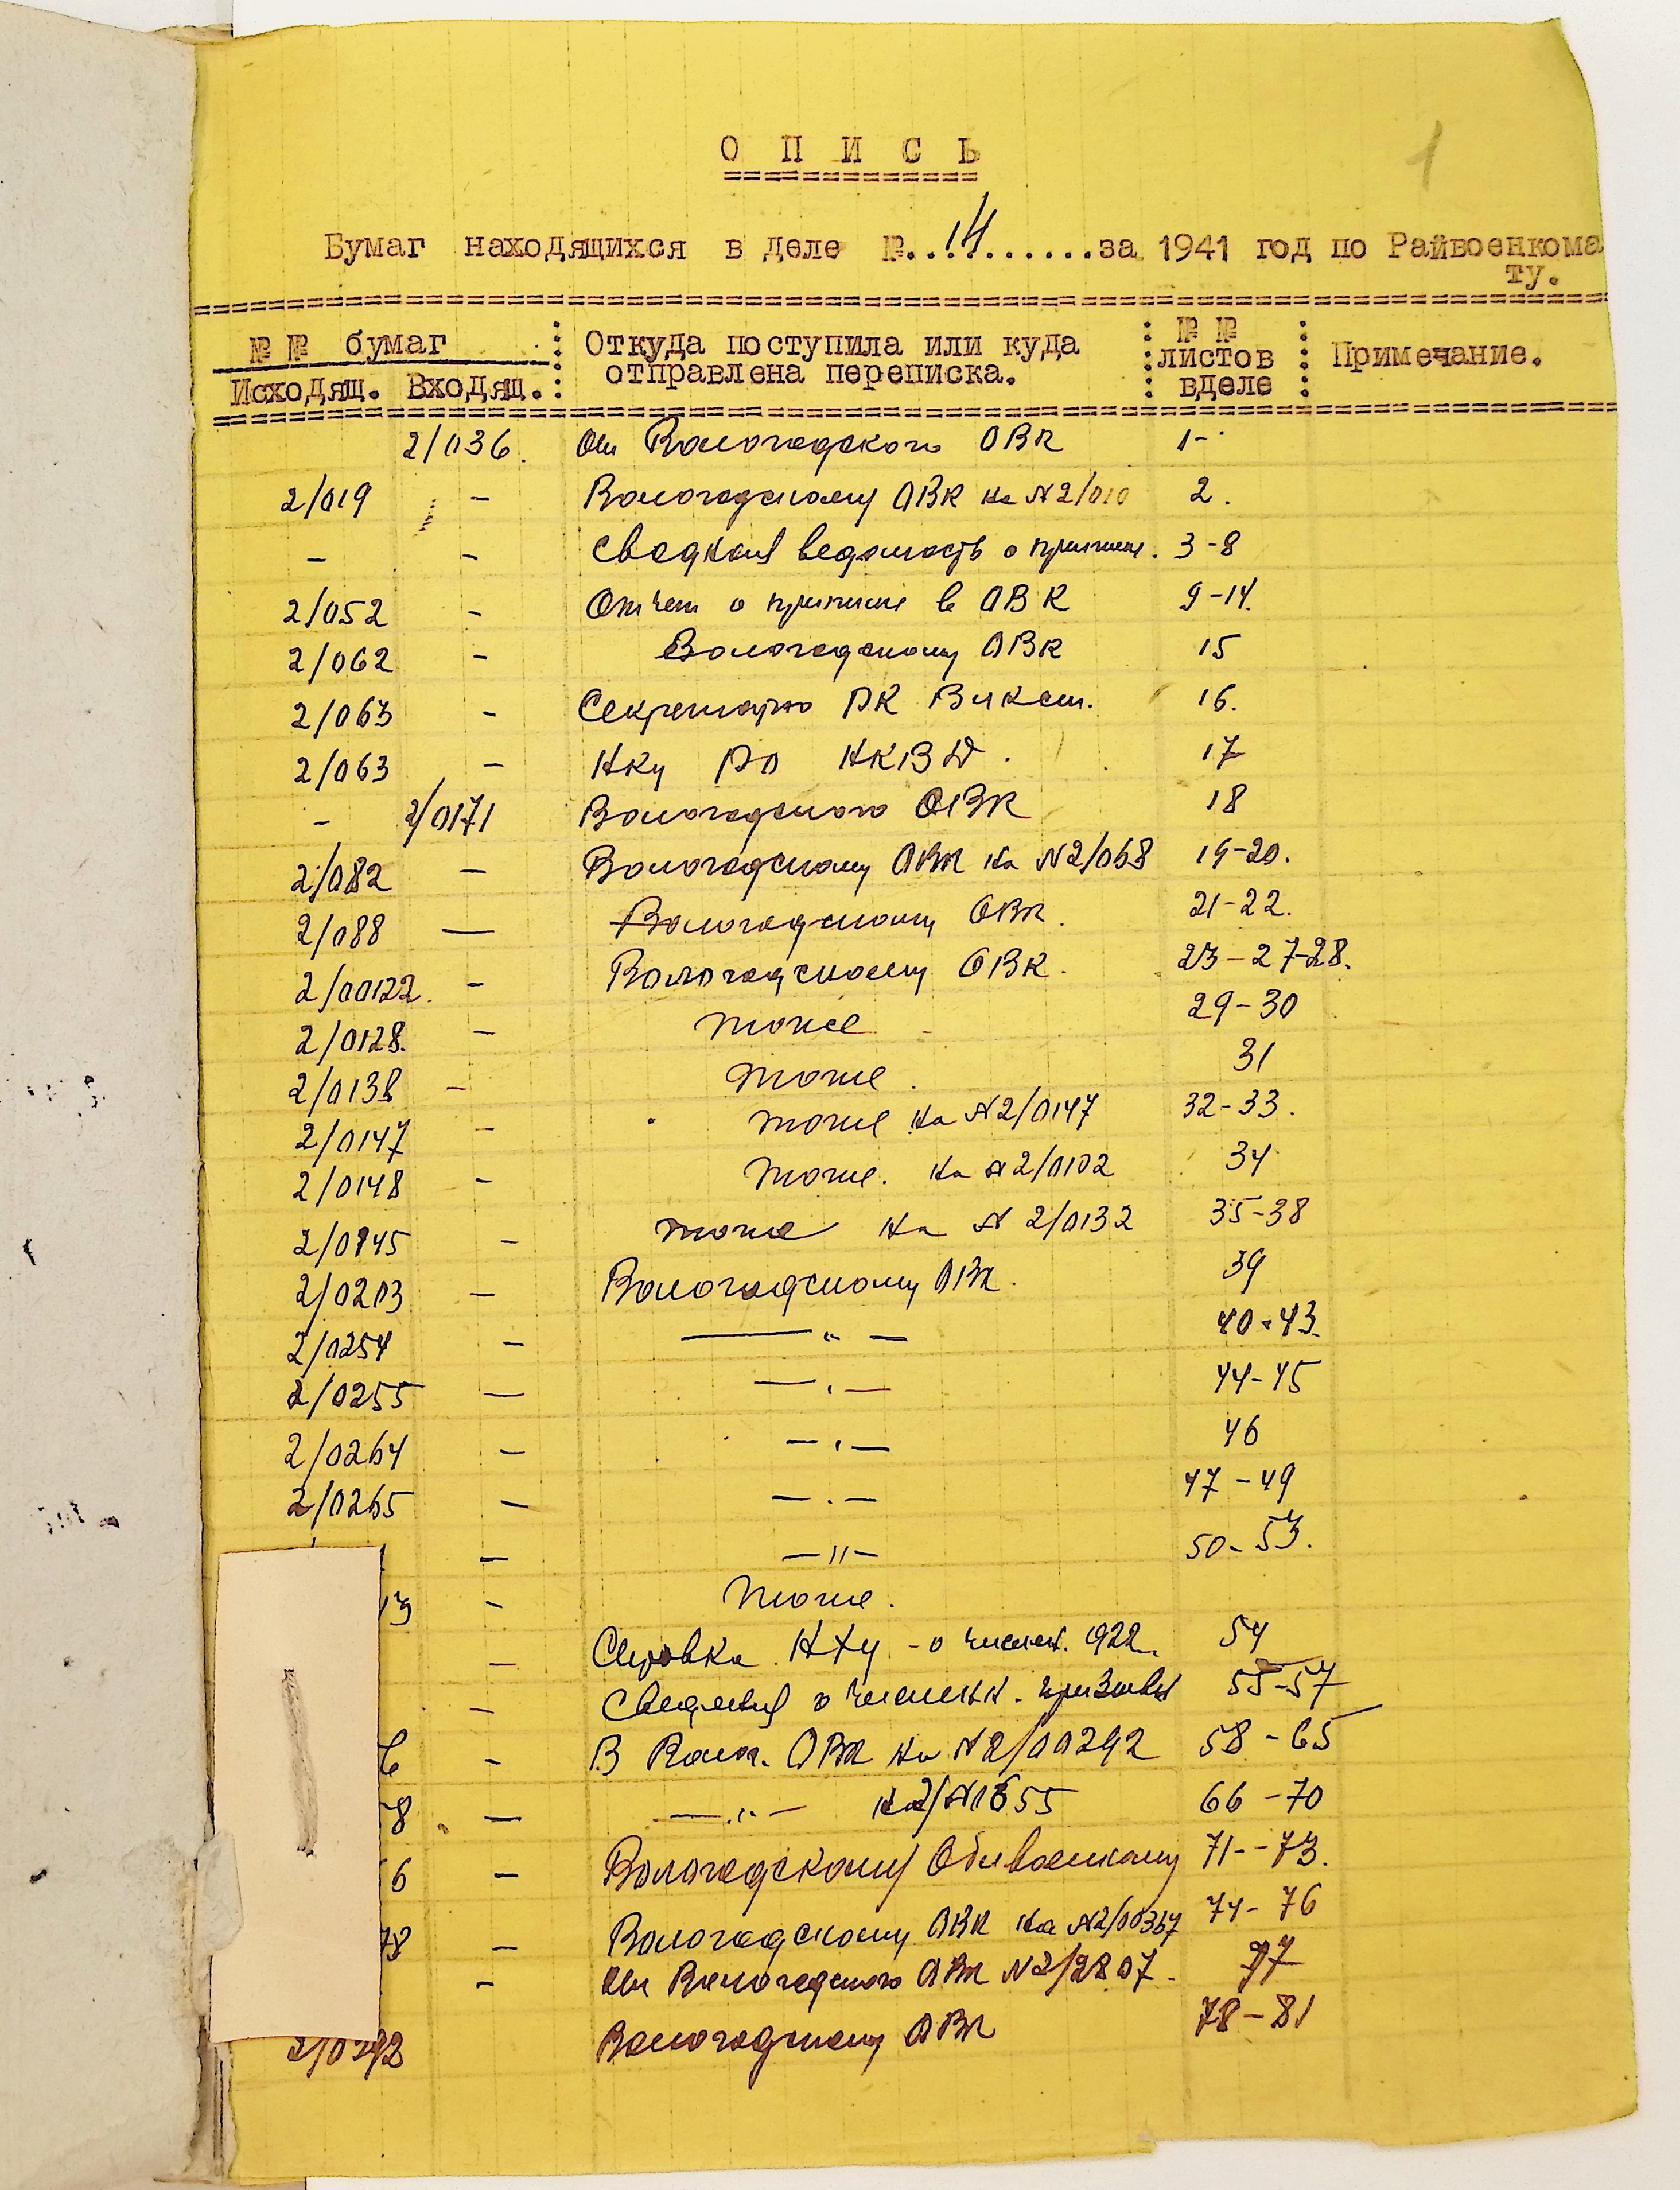 1
О П И С Ь
Бумаг находящихся в деле №..14......за 1941 год по Райвоенкома
ту.
№ № бумаг : Откуда поступила или куда : № № : Примечание.
Исходящ. Входящ. : отправлена переписка. : листов вделе :
2/036. От Вологодского ОВК 1-
2/019 - Вологодскому ОВК на N2/010 2.
- - Сводная ведомость о приписке. 3-8
2/052 - Отчет о приписке в ОВК 9-14.
2/062 - Вологодскому ОВК 15
2/063 - Секретарю РК Влксм. 16.
2/063 - Нку РО НКВД. 17
- 2/0171 Вологодского ОВК 18
2/082 - Вологодскому ОВК на N2/068 19-20.
2/088 — Вологодскому ОВК. 21-22.
2/00122. - Вологодскому ОВК. 23-27-28.
2/0128. - тоже 29-30
2/0138 - тоже. 31
2/0147 - тоже на N2/0147 32-33.
2/0148 - тоже. на N2/0102 34
2/0145 - тоже на N 2/0132 35-38
2/0203 - Вологодскому ОВК. 39
2/0254 - —„— 40-43.
2/0255 — —„— 44-45
2/0264 - —„— 46
2/0265 - —„— 47-49
- —„— 50-53.
13 - тоже.
- Справка НХУ - о числен. 922. 54
- Сведения о числен. призывн 55-57
6 - В Волог. ОВК на N2/00292 58-65
78 - —„— на 66-70
6 - Вологодскому Облвоенкому 71--73.
78 - Вологодскому ОВК на N2/00367 74-76
- От Вологодского ОВК N2/2807. 77
Вологодскому ОВК 78-81